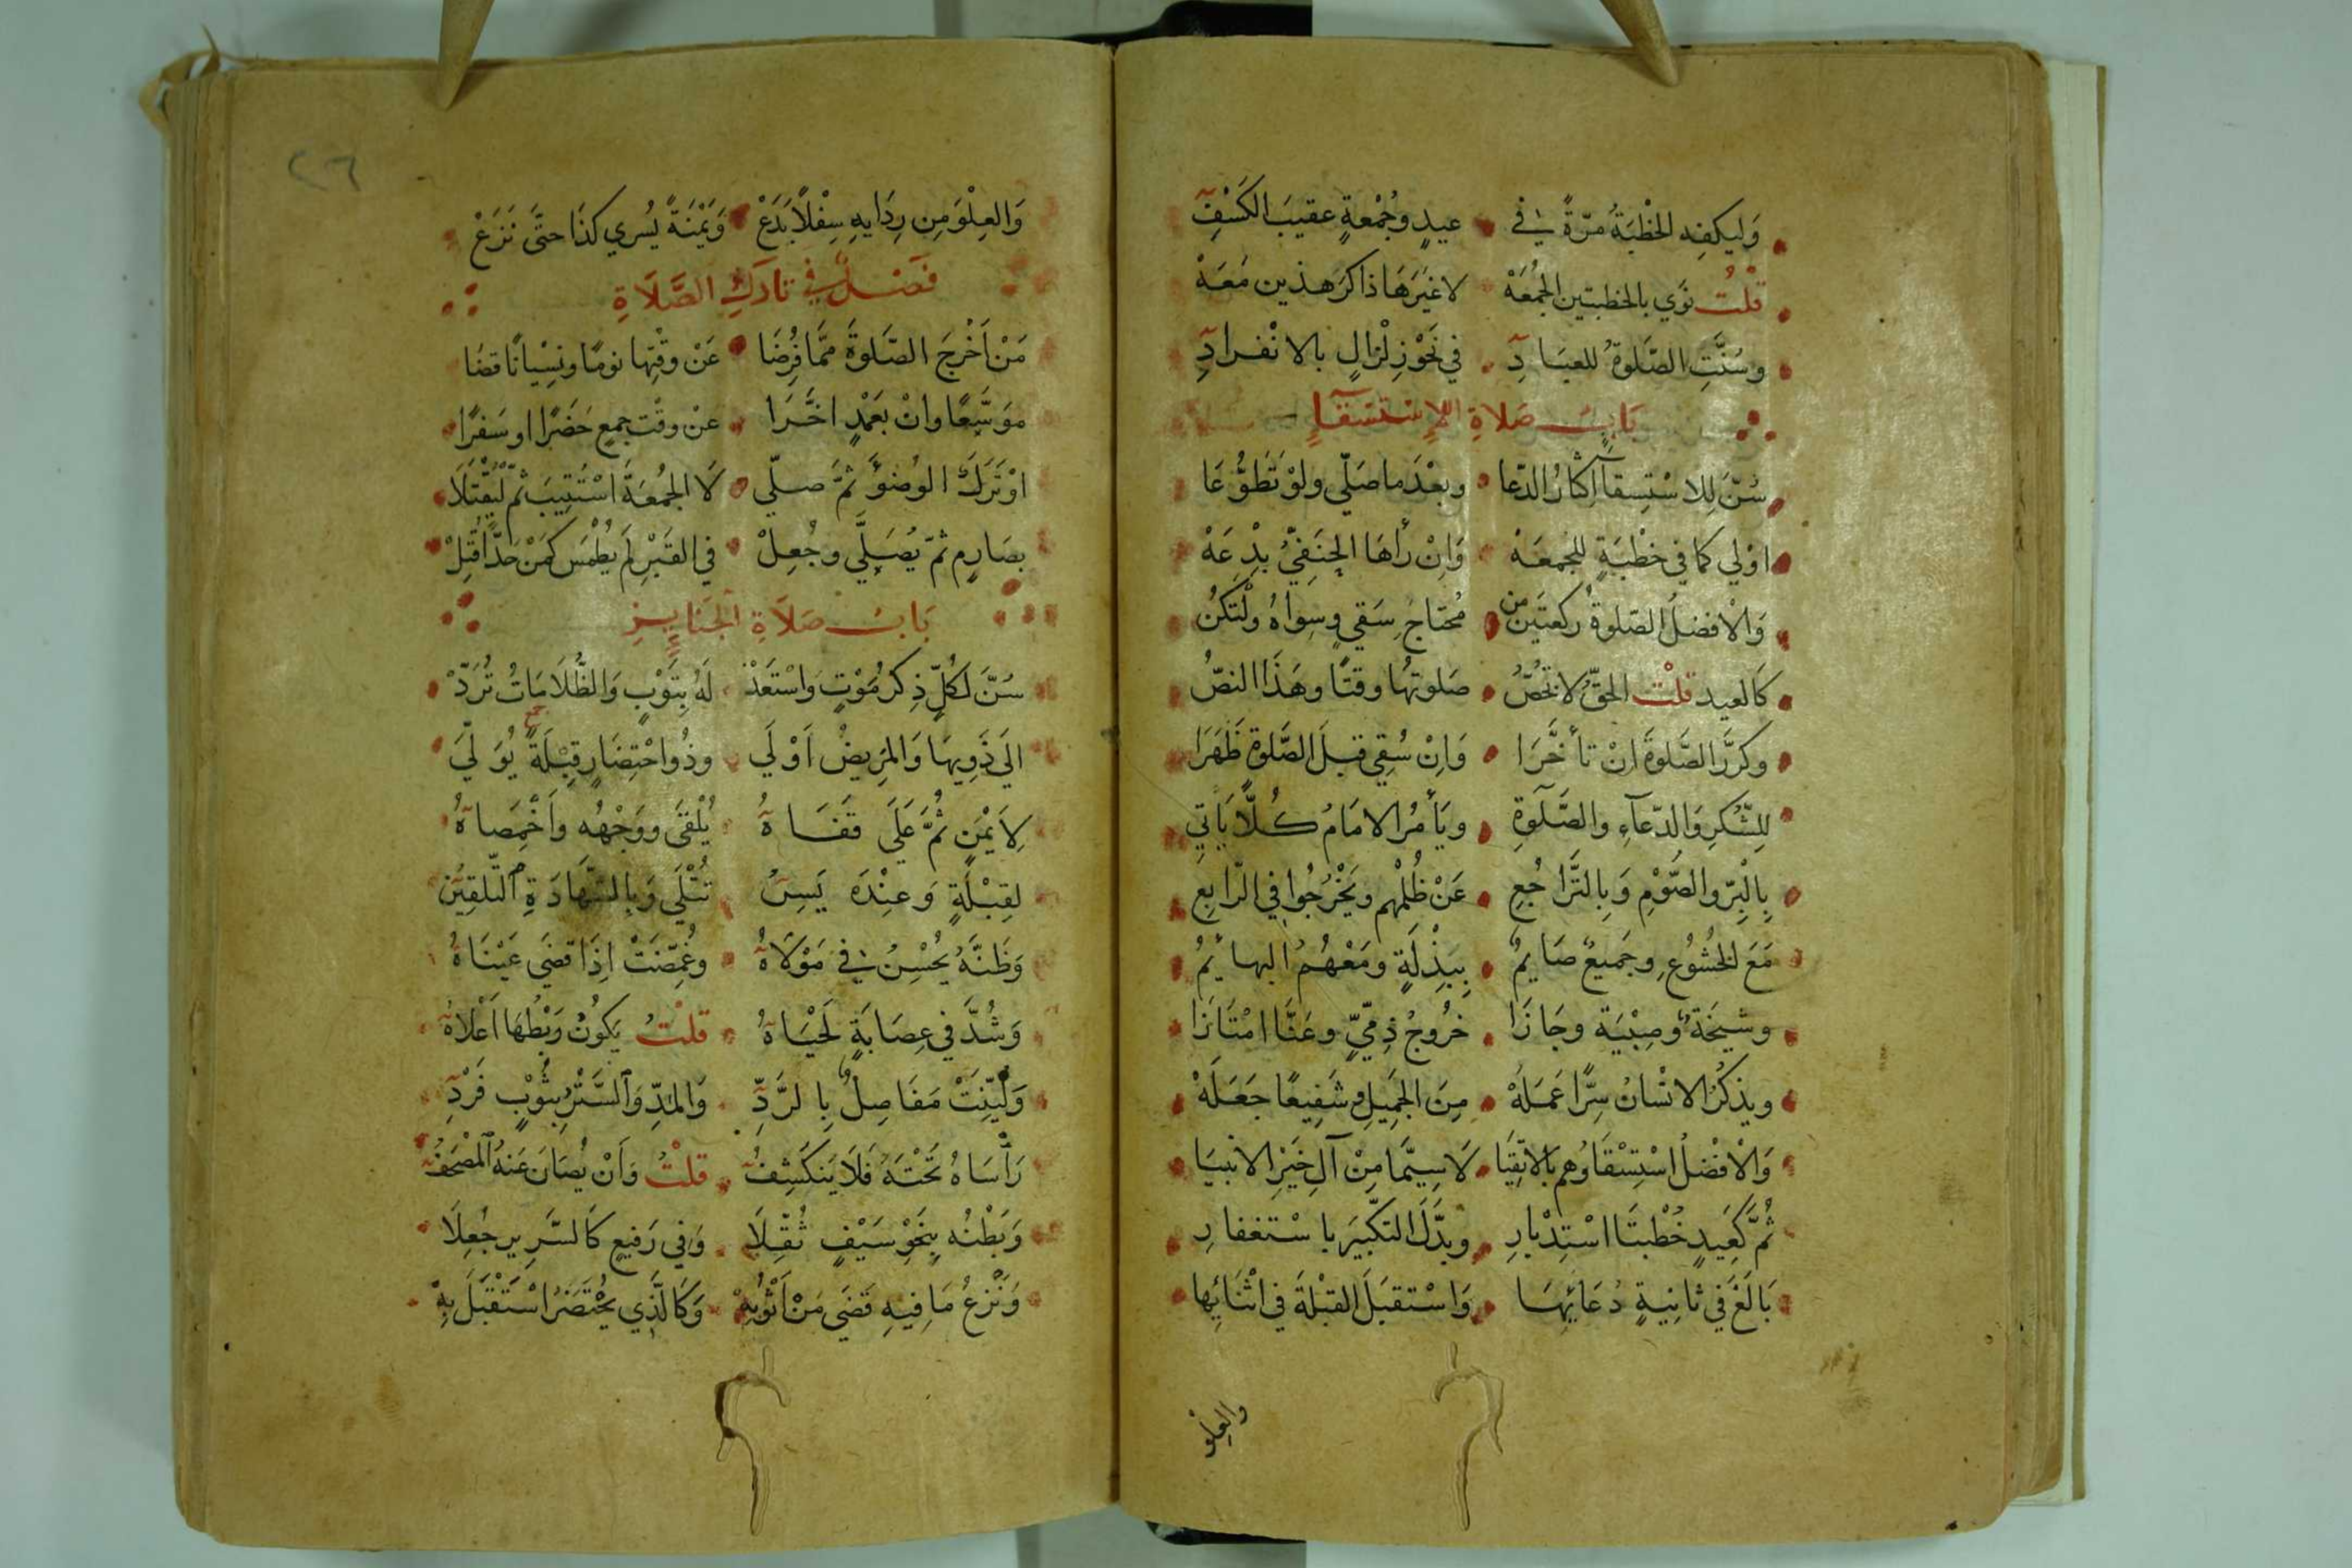 وَليكفِه الخُطْبَةُ مرّةً في • عيدٍ وجُمْعةٍ عقيبَ الكَسْفِ
قلتُ نوَي بالخطبتين الجُمُعَهْ لا غيَرهَا ذاكرَ هذين مَعَهْ
وسُنَّتِ الصَّلوةُ للعبَادِ • في نَحْوِ زِلْزالٍ بالانْفرادِ
بَابُ صَلاةِ الإِسْتسْقآءِ
سُنّ لِلاسْتِسقآ إكثارُ الدّعا • وبعْدَ ما صَلّي ولوْ تَطَوُّعَا
اوْلي كما في خُطْبَةٍ للجُمعَهْ • وَاِنْ رأهَا الحنَفِيّ بدْعَهْ
وَالْافضلُ الصّلوةُ ركعتَين من • مُحتاجِ سَقيٍ وسِوَاهُ ولْتَكنْ
كَالعيد قلتُ الحقّ لا تخُصُّ • صَلوتهَا وقتًا وهَذَا النصُّ
وكرَّرَ الصَّلوةَ انْ تأخَّرَا • وَاِنْ سُقِي قبلَ الصَّلوة ظَهَرَا
لِلشّكرِ وَالدّعآءِ والصَّلَوةِ • ويَأمُر الامَامُ كُلًّا يَاتي
بِالْبِرّ والصَّوْمِ وَبِالتَّراجُعِ • عَنْ ظُلْمْهِم ويَخْرُجُوا في الرّابِعِ
مَعَ الخُشُوُعِ وجَميعٌ صَايمٌ • بِبَذْلَةٍ ومَعْهُمُ البهايمُ
وشيخَةٌ وصِبْيَة وجَازَا • خرُوجُ ذمّيٍّ وعَنَّا امْتَازَا
ويذكُرُ الانْسَانُ سِرًّا عَمَلَهْ • مِنَ الجَمِيلِ وشَفِيعًا جَعَلَهْ
وَالْافْضلُ اسْتِسْقَاوُهم بالاتقِيَا • لَا سِيَّمَا مِنْ آلِ خَيْرِ الانبيَا
ثُمَّ كَعَيدٍ خُطْبتَا اسْتِدْبارِ • وبدَّلَ التكبّيَر باسْتغفارِ
بَالَغَ في ثانِيةٍ دُعَائِهَا • وَاسْتقبَلَ القبْلةَ في اثْنَائِها
والعِلْوَ
٢٦
وَالعِلْوَ مِن رِدَايهِ سِفْلًا يَدَعْ • وَيَمْنَةً يُسْري كذَا حتَّى نَزَعْ
فَصْلٌ في تَاركِ الصَّلَاةِ
مَنْ اَخْرجَ الصَّلوةَ ممَّا فُرِضَا • عَنْ وقْتِها نومًا ونِسْيانًا قضَا
موَسَّعًا وانْ بعَمْدٍ اخَّرَا • عنْ وقْتِ جمعٍ حَضَرًا او سَفرًا
اوْ تَرَكَ الوُضوَْ ثمَّ صلّي • لَا الجُمُعَةَ اسْتُتِيبَ ثمّ لْيُقْتَلَا
بصَارِمٍ ثمّ يُصَلَّي وجُعِلْ • في القَبْرِ لَم يُطْمَس كمَنْ حَدًّا قُتِلْ
بَابُ صَلَاةِ الجَنَايِزِ
سُنَّ لكُلٍّ ذِكرُ مَوْتٍ وَاسْتَعَدّْ • لَهُ بِتَوْبٍ وَالظُّلَامَاتُ تُرَدّْ
الَي ذَوِيهَا وَالمَرِيضُ اَوْلَي • وذُو احْتِضَارٍ قِبْلَةً يُوَلَّيَ
لِأَيْمَنٍ ثُمَّ عَلَي قَفَاهُ • يُلْقَى ووَجْهُه وأَخْمَصَاهُ
لقِبْلَةٍ وَعنْدَه يَسِنُ • تُتْلَي وَبالشَّهَادَةِ التّلقِيُن
وَظَنَّهُ يُحْسِنُ في مَوْلَاهُ • وغُمِّضَتْ اِذَا قضَى عَيْنَاهُ
وَشُدَّ في عِصَابَةٍ لَحْيَاهُ • قلْتُ يَكونُ رَبْطُهَا اَعْلَاهُ
وَليّنَتْ مَفَاصِلٌ بِالرَّدِّ • وَالمَدِّ وَالسَّتْرُ بِثَوْبٍ فَرْدِ
رَأْسَاهُ تَحْتَهُ فَلَا يَنكَشِفُ • قلْتُ وَأَنْ يُصَانَ عَنهُ المُصْحَفُ
وَبَطْنُه بِنَحْوِ سَيْفٍ ثُقِّلَا • وَفي رَفيعٍ كَالسَّرِيرِ جُعِلَا
وَنَزْعُ مَا فِيهِ قَضَي مَنْ اَثْوُبِهْ • وَكَالَّذِي يُحْتَضَرُ اسْتَقْبَلَ بِهْ